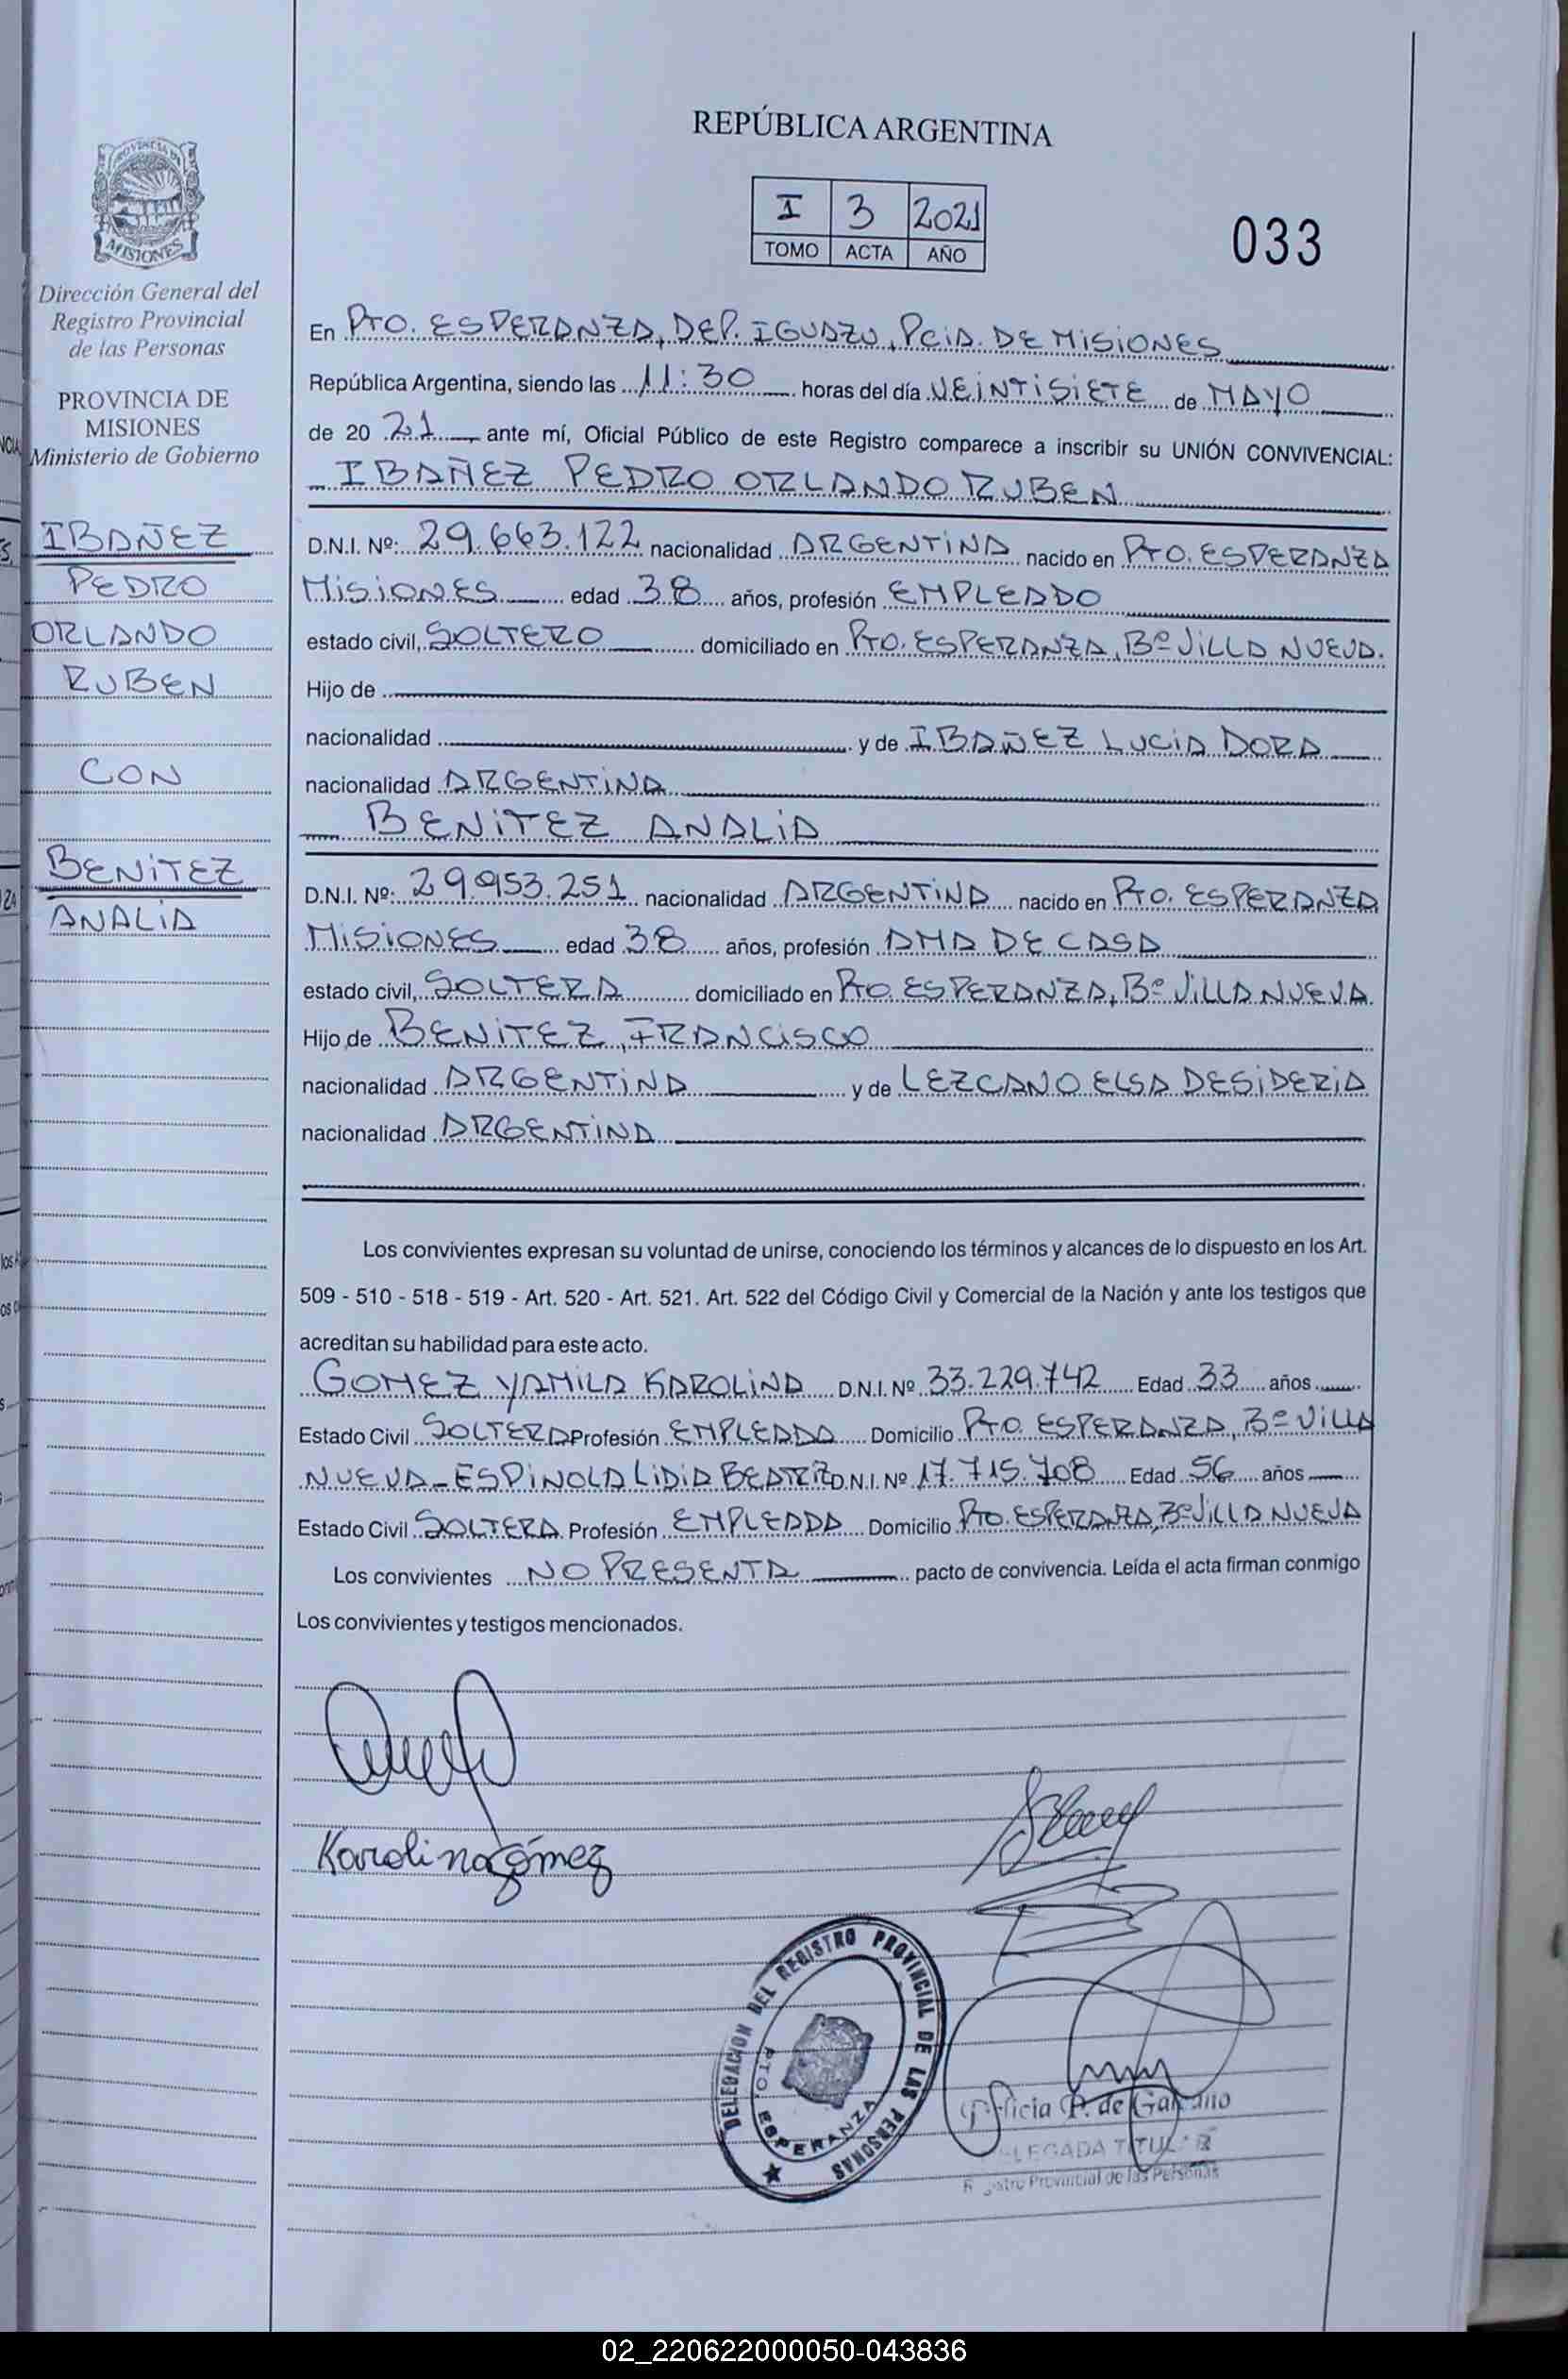 REPÚBLICA ARGENTINA
I 3 2021
TOMO ACTA AÑO
033
PROVINCIA DE
MISIONES
Dirección General del
Registro Provincial
de las Personas
PROVINCIA DE
MISIONES
Ministerio de Gobierno
IBAÑEZ
PEDRO
ORLANDO
RUBEN
CON
BENITEZ
ANALIA
En PTO. ESPERANZA, DEP. IGUAZU, PCIA. DE MISIONES
República Argentina, siendo las 11:30 horas del día VEINTISIETE de MAYO
de 20 21 ante mí, Oficial Público de este Registro comparece a inscribir su UNIÓN CONVIVENCIAL:
IBAÑEZ PEDRO ORLANDO RUBEN
D.N.I. Nº: 29.663.122 nacionalidad ARGENTINA nacido en PTO. ESPERANZA
MISIONES edad 38 años, profesión EMPLEADO
estado civil, SOLTERO domiciliado en PTO. ESPERANZA, Bº VILLA NUEVA.
Hijo de
nacionalidad y de IBAÑEZ LUCIA DORA
nacionalidad ARGENTINA
BENITEZ ANALIA
D.N.I. Nº: 29.953.251 nacionalidad ARGENTINA nacido en PTO. ESPERANZA
MISIONES edad 38 años, profesión AMA DE CASA
estado civil, SOLTERA domiciliado en PTO. ESPERANZA, Bº VILLA NUEVA.
Hijo de BENITEZ, FRANCISCO
nacionalidad ARGENTINA y de LEZCANO ELSA DESIDERIA
nacionalidad ARGENTINA
Los convivientes expresan su voluntad de unirse, conociendo los términos y alcances de lo dispuesto en los Art.
509 - 510 - 518 - 519 - Art. 520 - Art. 521. Art. 522 del Código Civil y Comercial de la Nación y ante los testigos que
acreditan su habilidad para este acto.
GOMEZ YAMILA KAROLINA D.N.I. Nº 33.229.742 Edad 33 años
Estado Civil SOLTERA Profesión EMPLEADA Domicilio PTO. ESPERANZA, Bº VILLA
NUEVA - ESPINOLA LIDIA BEATRIZ D.N.I. Nº 17.715.708 Edad 56 años
Estado Civil SOLTERA Profesión EMPLEADA Domicilio PTO. ESPERANZA, Bº VILLA NUEVA
Los convivientes NO PRESENTA pacto de convivencia. Leída el acta firman conmigo
Los convivientes y testigos mencionados.
Karolina Gómez
DELEGACION DEL REGISTRO PROVINCIAL DE LAS PERSONAS
PTO. ESPERANZA
de
TITULAR
Provincial de las Personas
02_220622000050-043836